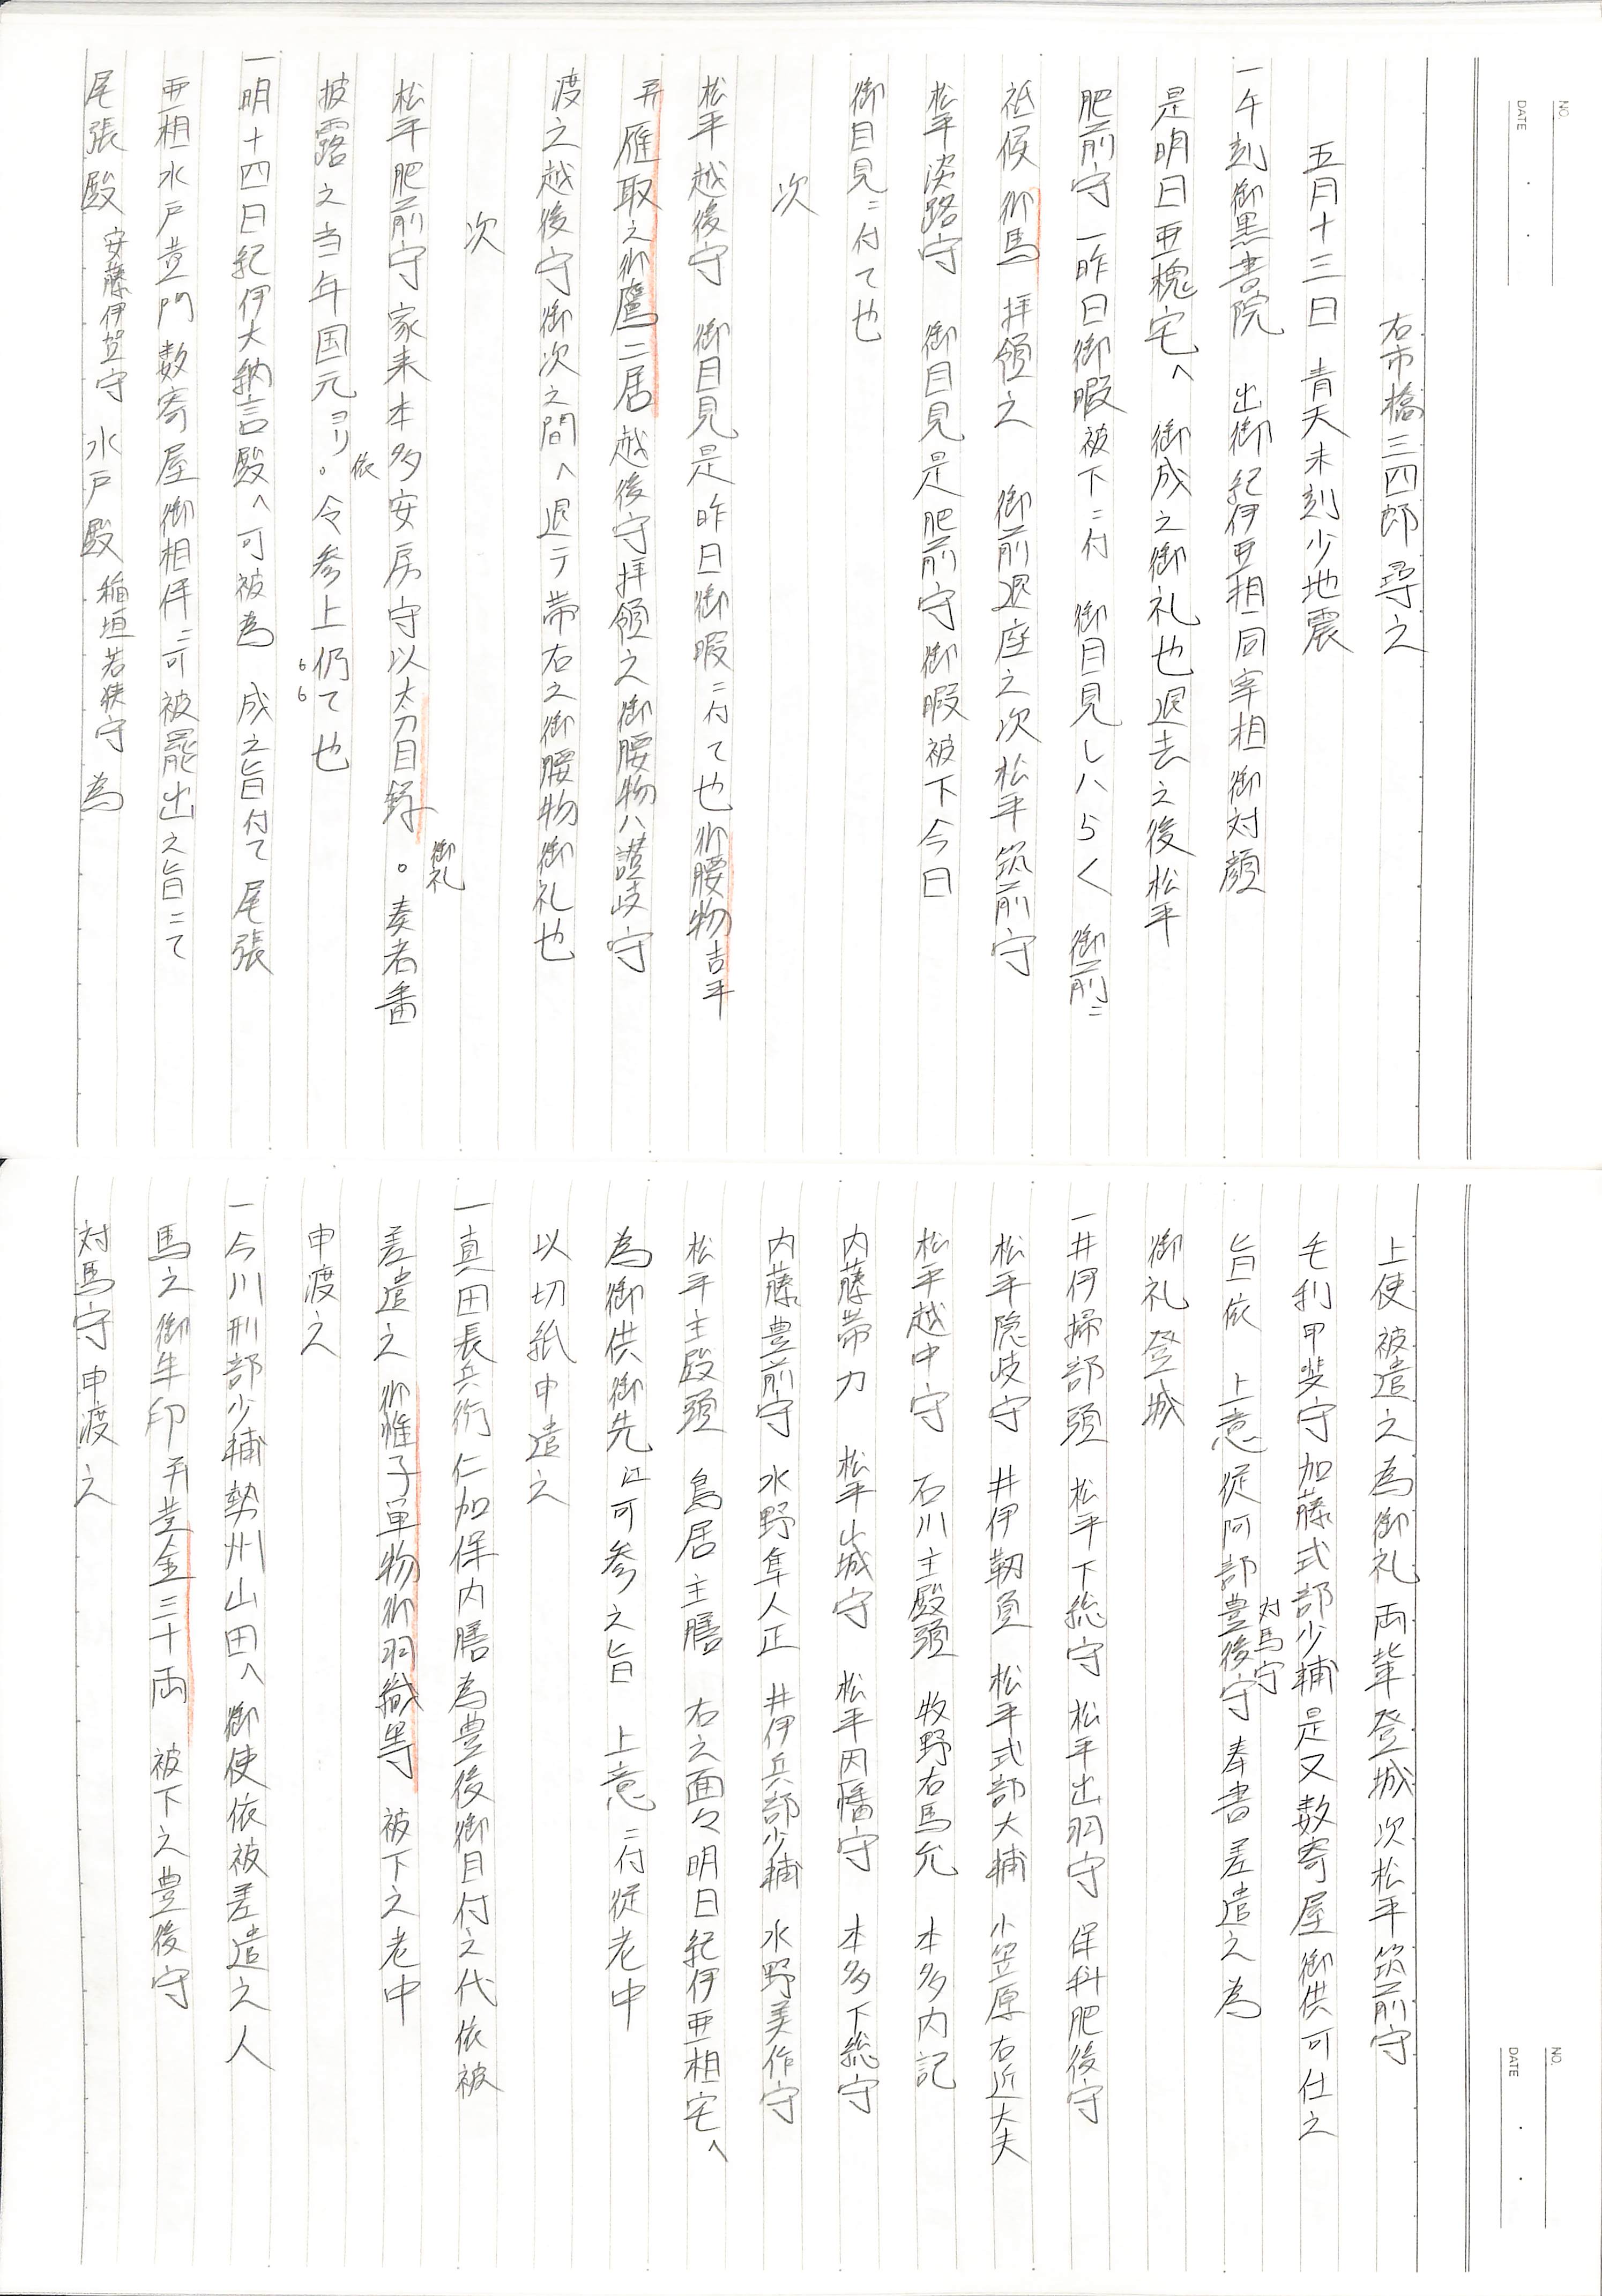 NO.
DATE
右市橋三四郎尋之
五月十三日 青天未刻少地震
一午刻御黒書院 出御紀伊亜相同宰相御対顔
是明日亜槐宅へ 御成之御礼也退去之後松平
肥前守一昨日御暇被下ニ付 御目見しハらく 御前ニ
祗候御馬 拝領之 御前退座之次松平筑前守
松平淡路守 御目見是肥前守御暇被下今日
御目見ニ付て也
次
松平越後守 御目見是昨日御暇ニ付て也御腰物吉平
并雁取之御鷹二居越後守拝領之御腰物ハ讃岐守
渡之越後守御次之間へ退テ帯右之御腰物御礼也
次
松平肥前守家来本多安房守以太刀目録。御礼奏者番
披露之当年国元ヨリ。依令参上仍て也
一明十四日紀伊大納言殿へ可被為 成之旨付て尾張
亜相水戸黄門数寄屋御相伴ニ可被罷出之旨ニて
尾張殿 安藤伊賀守 水戸殿 稲垣若狭守 為
NO.
DATE
上使被遣之為御礼両輩登城次松平筑前守
毛利甲斐守加藤式部少輔是又数寄屋御供可仕之
旨依 上意従阿部豊後守対馬守奉書差遣之為
御礼登城
一井伊掃部頭 松平下総守 松平出羽守 保科肥後守
松平隠岐守 井伊靱負 松平式部大輔 小笠原右近大夫
松平越中守 石川主殿頭 牧野右馬允 本多内記
内藤帯刀 松平山城守 松平因幡守 本多下総守
内藤豊前守 水野隼人正 井伊兵部少輔 水野美作守
松平主殿頭 鳥居主膳 右之面々明日紀伊亜相宅へ
為御供御先江可参之旨 上意ニ付従老中
以切紙申遣之
一真田長兵衛仁加保内膳為豊後御目付之代依被
差遣之御帷子単物御羽織等 被下之老中
申渡之
一今川刑部少輔勢州山田へ御使依被差遣之人
馬之御朱印并黄金三十両 被下之豊後守
対馬守申渡之